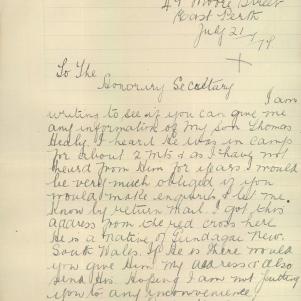 49 Moore Street
East Perth
July 21/19
To The
Honorury Secretary
I am
writing to see if you can give me
any information of my son Thomas
Healy. I heard he was in camp
for about 2 mts & as I have not
heard from him for years would
be very much obliged if you
would make enquiries & let me
know by return mail. I got this
address from the red cross here
He is a native of Gundagai New
South Wales. If He is there would
you give him my address & also
send his. Hoping I am not putting
you to any inconvenience